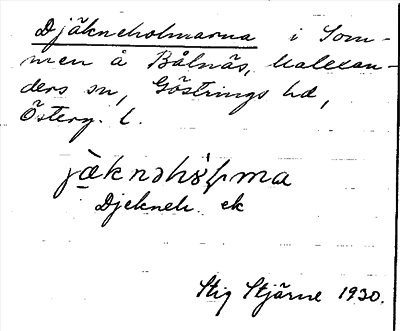 Djäkneholmarna i Som-
men å Bålnäs, Malexan-
ders sn, Göstrings hd,
Österg. l.
jäknəhɵ̀lma
Djekneh. ek
Stig Stjärne 1930.